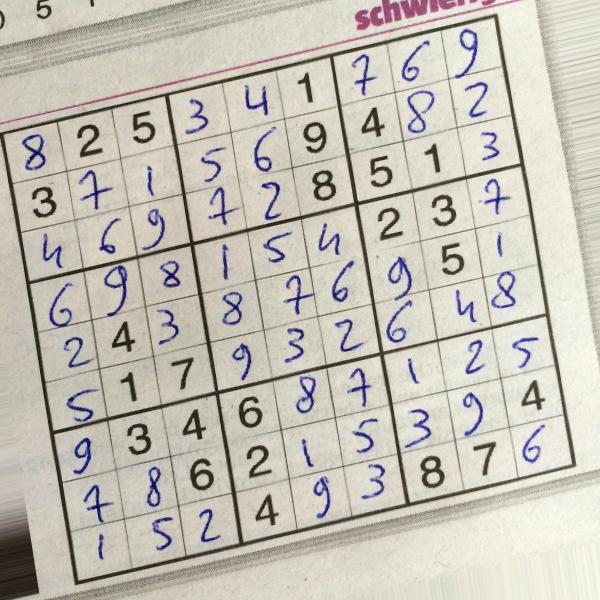 5
schwierig
8 2 5 3 4 1 7 6 9
3 7 1 5 6 9 4 8 2
4 6 9 7 2 8 5 1 3
6 9 8 1 5 4 2 3 7
2 4 3 8 7 6 9 5 1
5 1 7 9 3 2 6 4 8
9 3 4 6 8 7 1 2 5
7 8 6 2 1 5 3 9 4
1 5 2 4 9 3 8 7 6